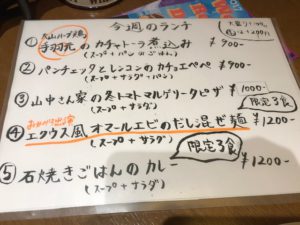 今週のランチ
大山ハーブ鶏
① 手羽元のカチャトーラ煮込み ¥900-
(スープ+パン or ごはん)
② パンチェッタとレンコンのカチョエペペ ¥900-
(スープ+サラダ+パン)
③ 山中さん家の冬トマトマルゲリータピザ ¥1000-
(スープ+サラダ)
限定3食
④ エクウス風 オマールエビのだし混ぜ麺 ¥1200-
(スープ+サラダ)
限定3食
⑤ 石焼きごはんのカレー ¥1200-
(スープ+サラダ)